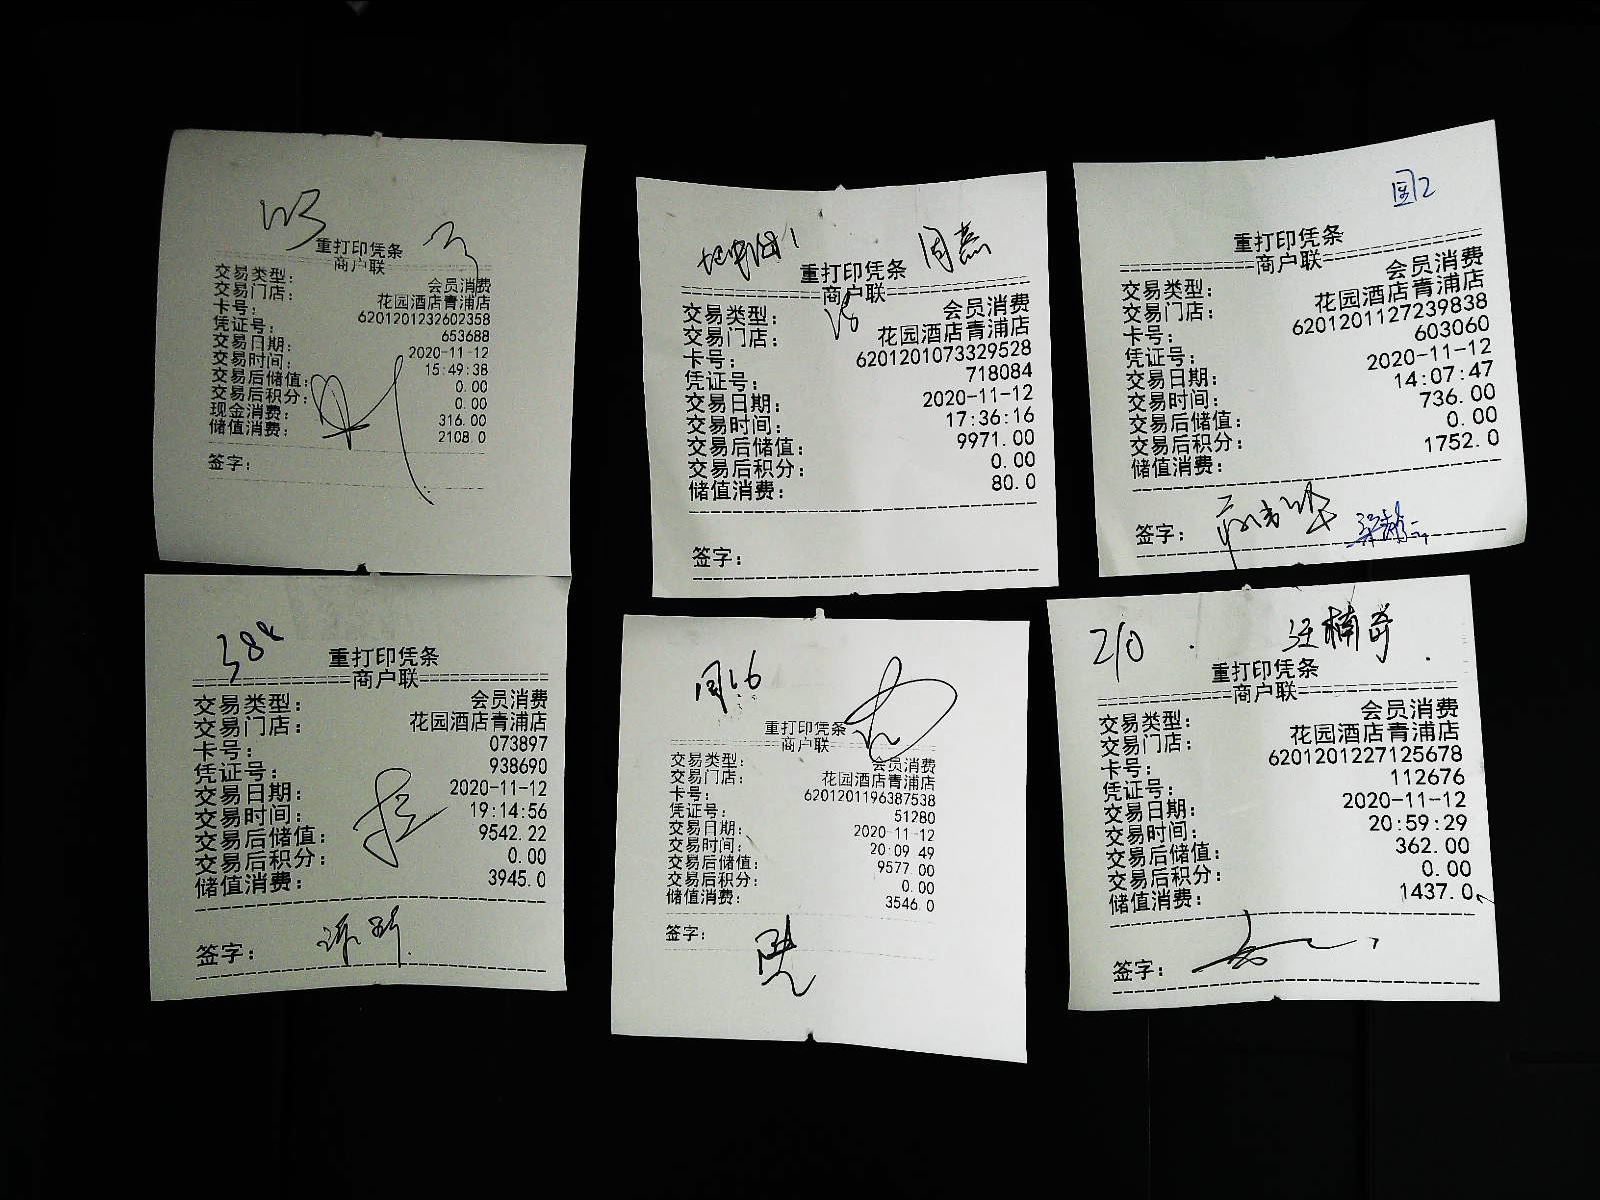 重打印凭条
商户联
交易类型: 会员消费
交易门店: 花园酒店青浦店
卡号: 6201201232602358
凭证号: 653688
交易日期: 2020-11-12
交易时间: 15:49:38
交易后储值: 0.00
交易后积分: 0.00
现金消费: 316.00
储值消费: 2108.0
签字:
重打印凭条
商户联
交易类型: 会员消费
交易门店: 花园酒店青浦店
卡号: 6201201073329528
凭证号: 718084
交易日期: 2020-11-12
交易时间: 17:36:16
交易后储值: 9971.00
交易后积分: 0.00
储值消费: 80.0
签字:
圆2
重打印凭条
商户联
交易类型: 会员消费
交易门店: 花园酒店青浦店
卡号: 6201201127239838
凭证号: 603060
交易日期: 2020-11-12
交易时间: 14:07:47
交易后储值: 736.00
交易后积分: 0.00
储值消费: 1752.0
签字:
重打印凭条
商户联
交易类型: 会员消费
交易门店: 花园酒店青浦店
卡号: 073897
凭证号: 938690
交易日期: 2020-11-12
交易时间: 19:14:56
交易后储值: 9542.22
交易后积分: 0.00
储值消费: 3945.0
签字:
重打印凭条
商户联
交易类型: 会员消费
交易门店: 花园酒店青浦店
卡号: 6201201196387538
凭证号: 51280
交易日期: 2020-11-12
交易时间: 20:09 49
交易后储值: 9577 00
交易后积分: 0.00
储值消费: 3546 0
签字:
210 汪楠奇
重打印凭条
商户联
交易类型: 会员消费
交易门店: 花园酒店青浦店
卡号: 6201201227125678
凭证号: 112676
交易日期: 2020-11-12
交易时间: 20:59:29
交易后储值: 362.00
交易后积分: 0.00
储值消费: 1437.0
签字: